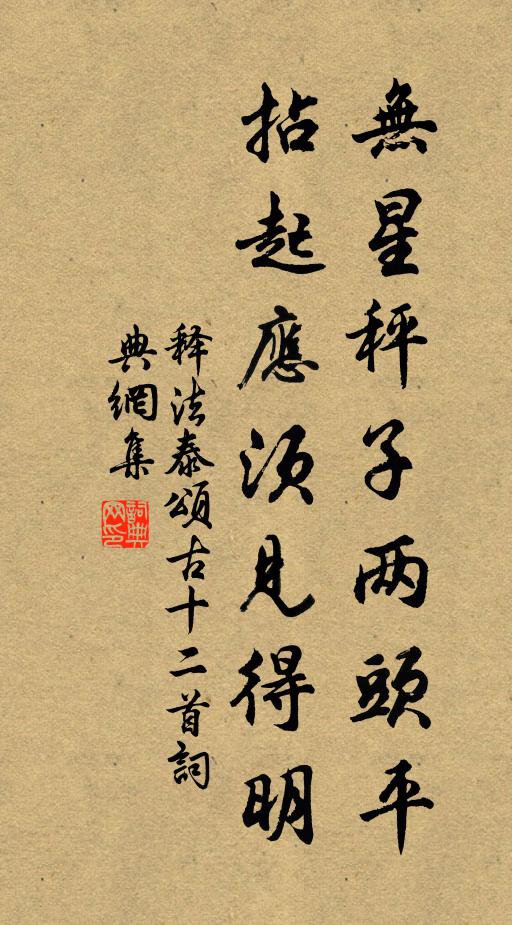 無星秤子两頭平
拈起應須見得明
释法泰頌古十二首詞
典網集
詞典
网印